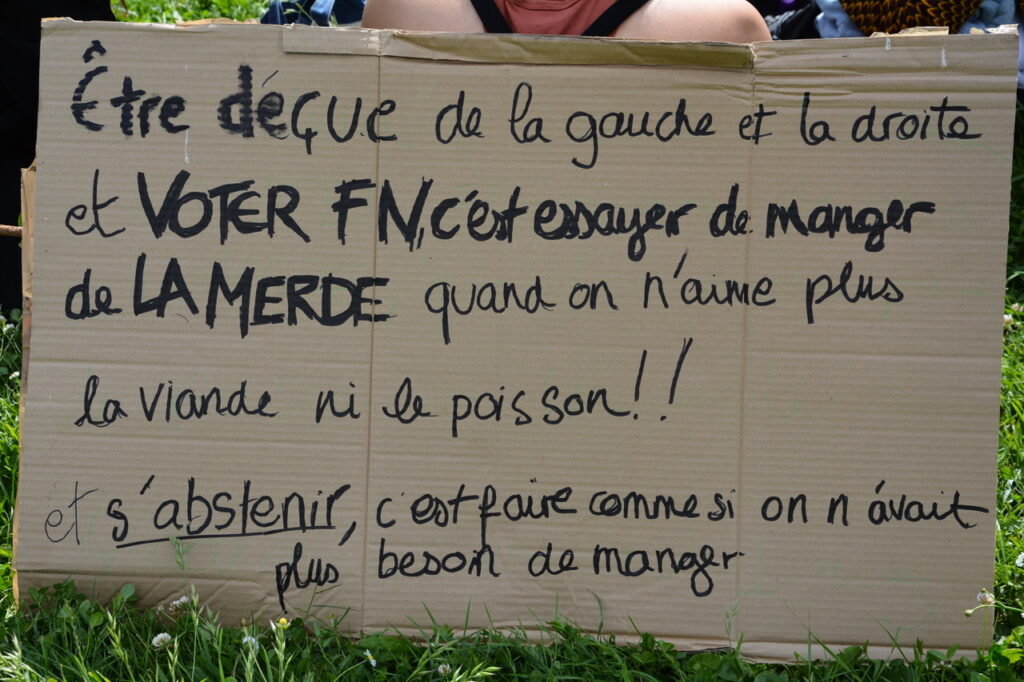 Être déçue de la gauche et la droite
et VOTER FN, c'est essayer de manger
de LA MERDE quand on n'aime plus
la viande ni le poisson!!
et s'abstenir, c'est faire comme si on n'avait
plus besoin de manger